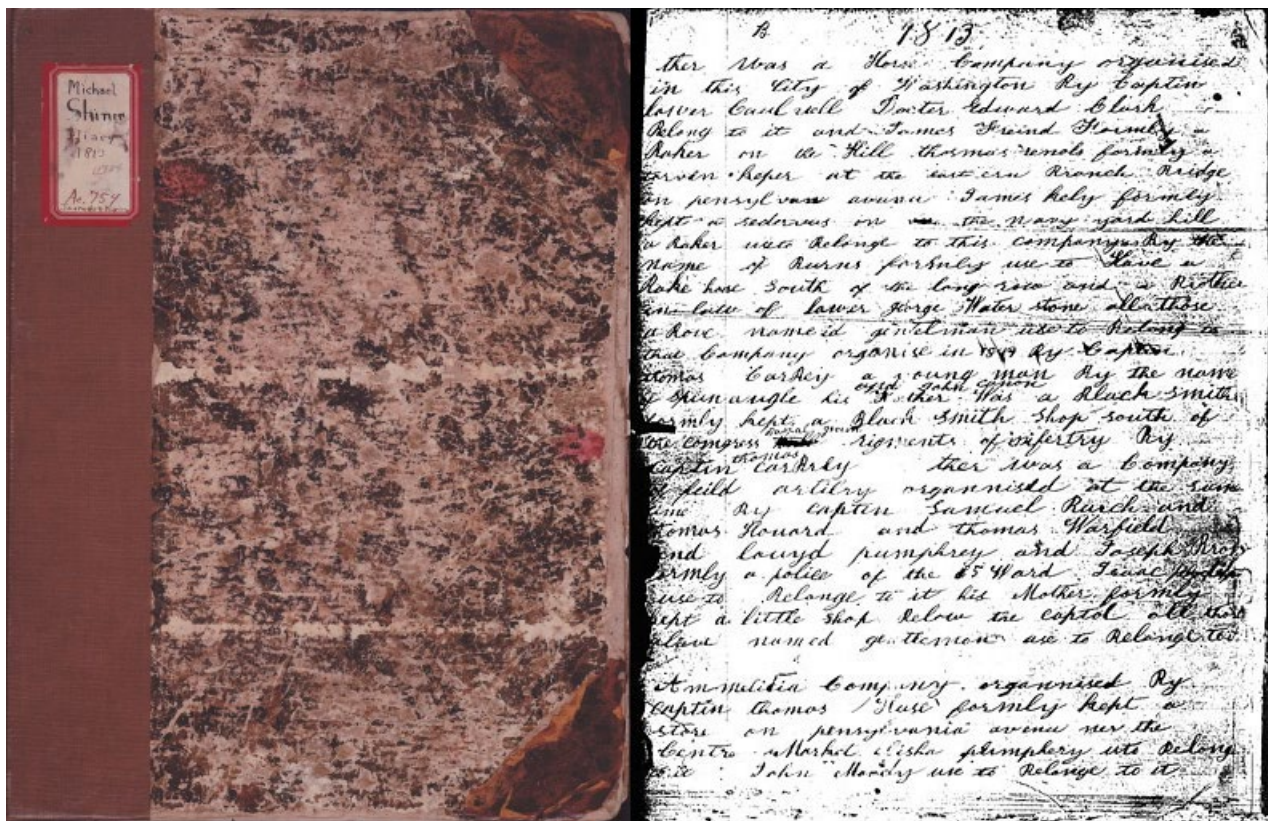 Michael
Shiner
Diary
1813
Ac. 754
1813
ther was a Horse Company organised
in this City of Washington By Captin
Doctor Edward Clark
Belong to it and James Freind formly a
Baker on the Hill thosmas formly a
keper at the eastern Branch Bridge
on pensylvan avenu James kely formly
kept a on the navy yard hill
a Baker Belonge to this company By the
name of Burns formly use to Have a
Bake hose South of the long row and a Brother
in law of george Water stone all those
a Bove named gentelman use to Belong to
that Company organise in By Captin
thomas a young man By the name
his Father Was a Black smith
formly kept a Black smith Shop south of
the Congress rigments of infertry By
Captin thomas ther was a Company
of feild artilry organnised at the same
time By captin Samuel Burch and
thomas Howard and thomas Warfield
and pumphrey and Joseph
formly a police of the Ward
use to Belonge to it his Mother formly
kept a little shop Below the captol all those
above named gentlemon use to Belonge to
Company organnised By
Captin thomas formly kept a
store on pensylvania avenu ner the
Centre Market Belong
to it John Moody use to Belonge to it